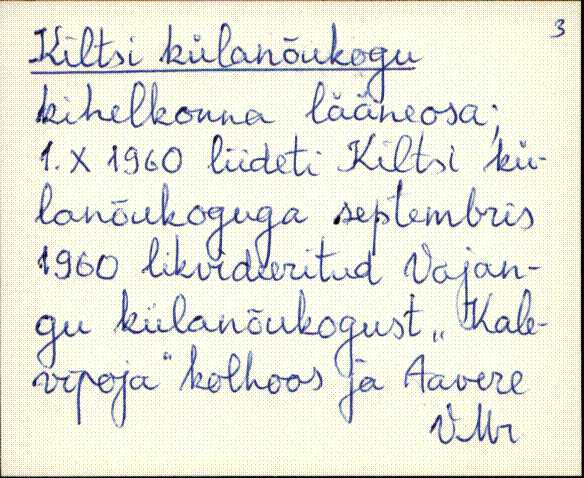 3
Kiltsi külanõukogu
kihelkonna lääneosa;
1. X 1960 liideti Kiltsi kü-
lanõukoguga septembris
1960 likvideeritud Vajan-
gu külanõukogust „Kale-
vipoja" kolhoos ja Aavere
VMr